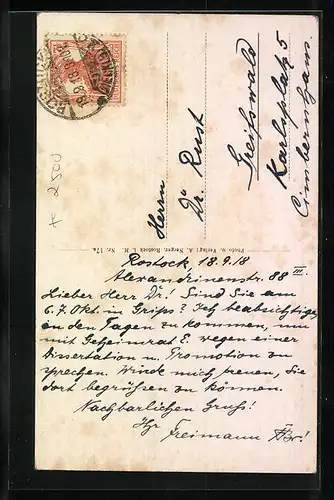 Herrn
Dr. Rust
Greifswald
Karlsplatz 5
Cimbernhaus.
Photo u. Verlag: A. Nerger, Rostock i. M. Nr. 17a
Rostock, 18.9.18
Alexandrinenstr. 88 III.
Lieber Herr Dr.! Sind Sie am
6. 7. Okt. in Grips? Ich beabsichtige,
an den Tagen zu kommen, um
mit Geheimrat E. wegen einer
Dissertation u. Promotion zu
sprechen. Würde mich freuen, Sie
dort begrüssen zu können.
Nachbarlichen Gruss!
Ihr
Freimann